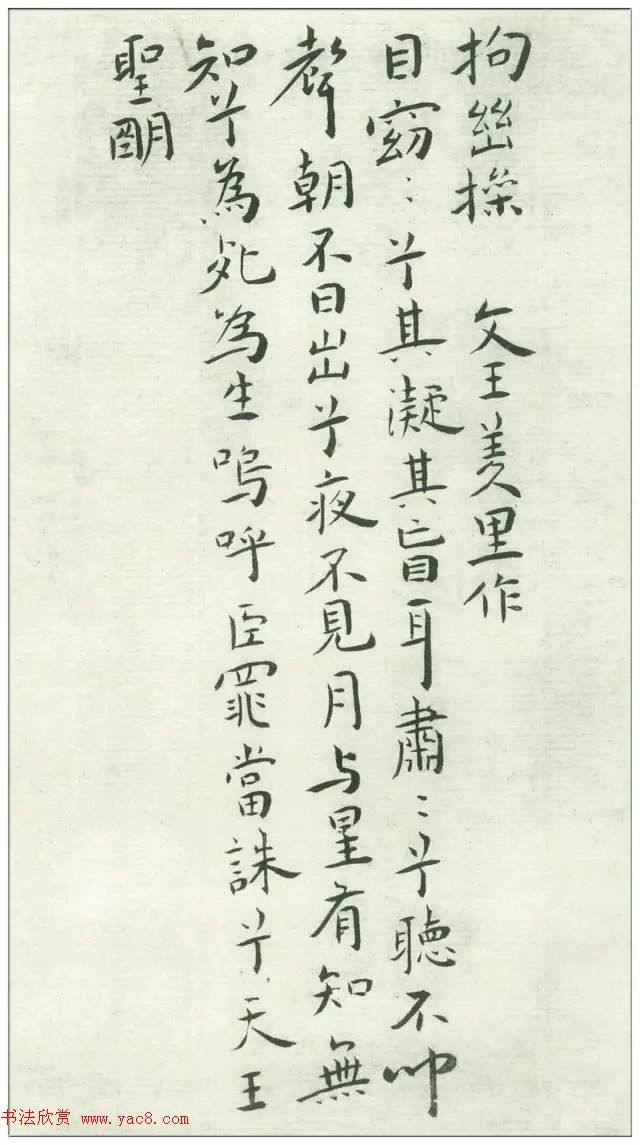 拘幽操 文王羑里作
目窈〻兮其凝其盲耳肅〻兮聽不聞
聲朝不日出兮夜不見月与星有知無
知兮為死為生嗚呼臣罪當誅兮天王
聖朙
书法欣赏 www.yac8.com